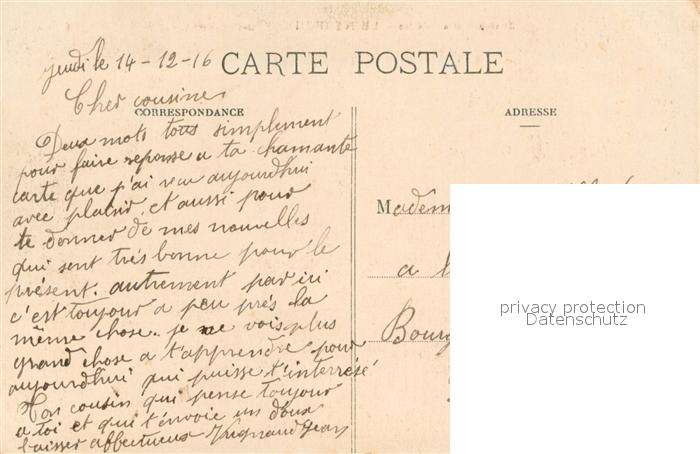 jeudi le 14-12-16
CARTE POSTALE
Cher cousine
CORRESPONDANCE
ADRESSE
Deux mots tous simplement
pour faire reponse a ta chamante
carte que j'ai reçu aujourdhui
avec plaisir. et aussi pour
te donner de mes nouvelles
qui sont très bonne pour le
présent. autrement par ici
c'est toujour a peu près la
même chose. je ne vois plus
grand chose a t'apprendre pour
aujourdhui qui puisse t'interrésé
Ton cousin qui pense toujour
a toi et qui t'envoie un doux
baisser affectueux Jean
Madem
a
Bourg
privacy protection
Datenschutz